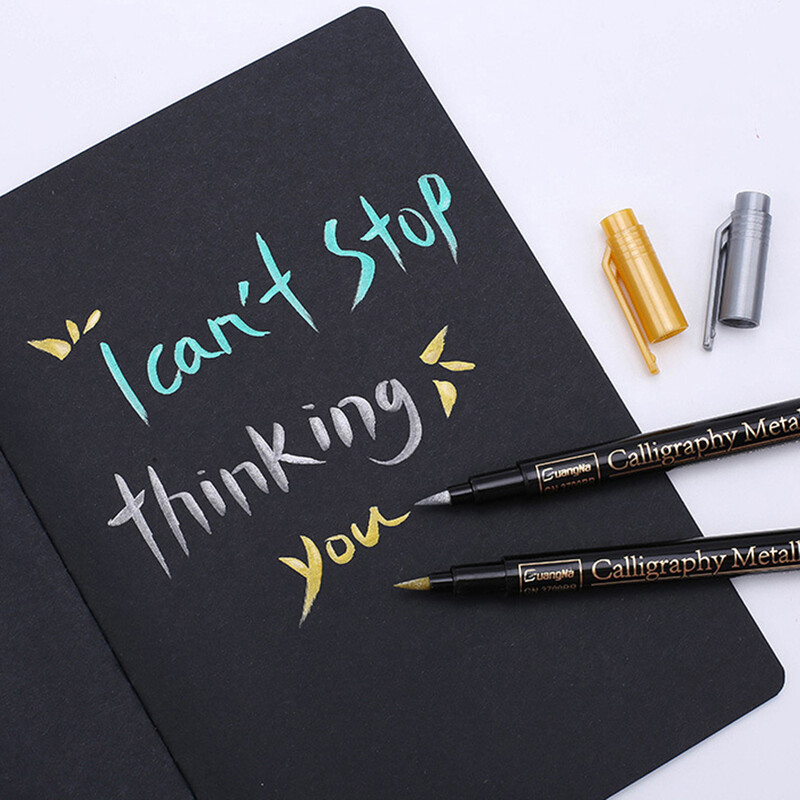 I can't Stop
thinking
you
GuangNa Calligraphy Metall
GuangNa Calligraphy Metall
GN 3700BR